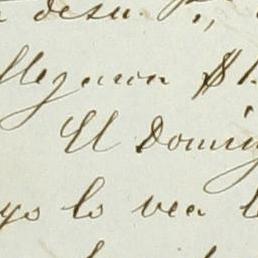 desu
llegaron $1
El Domin
yo lo vea l